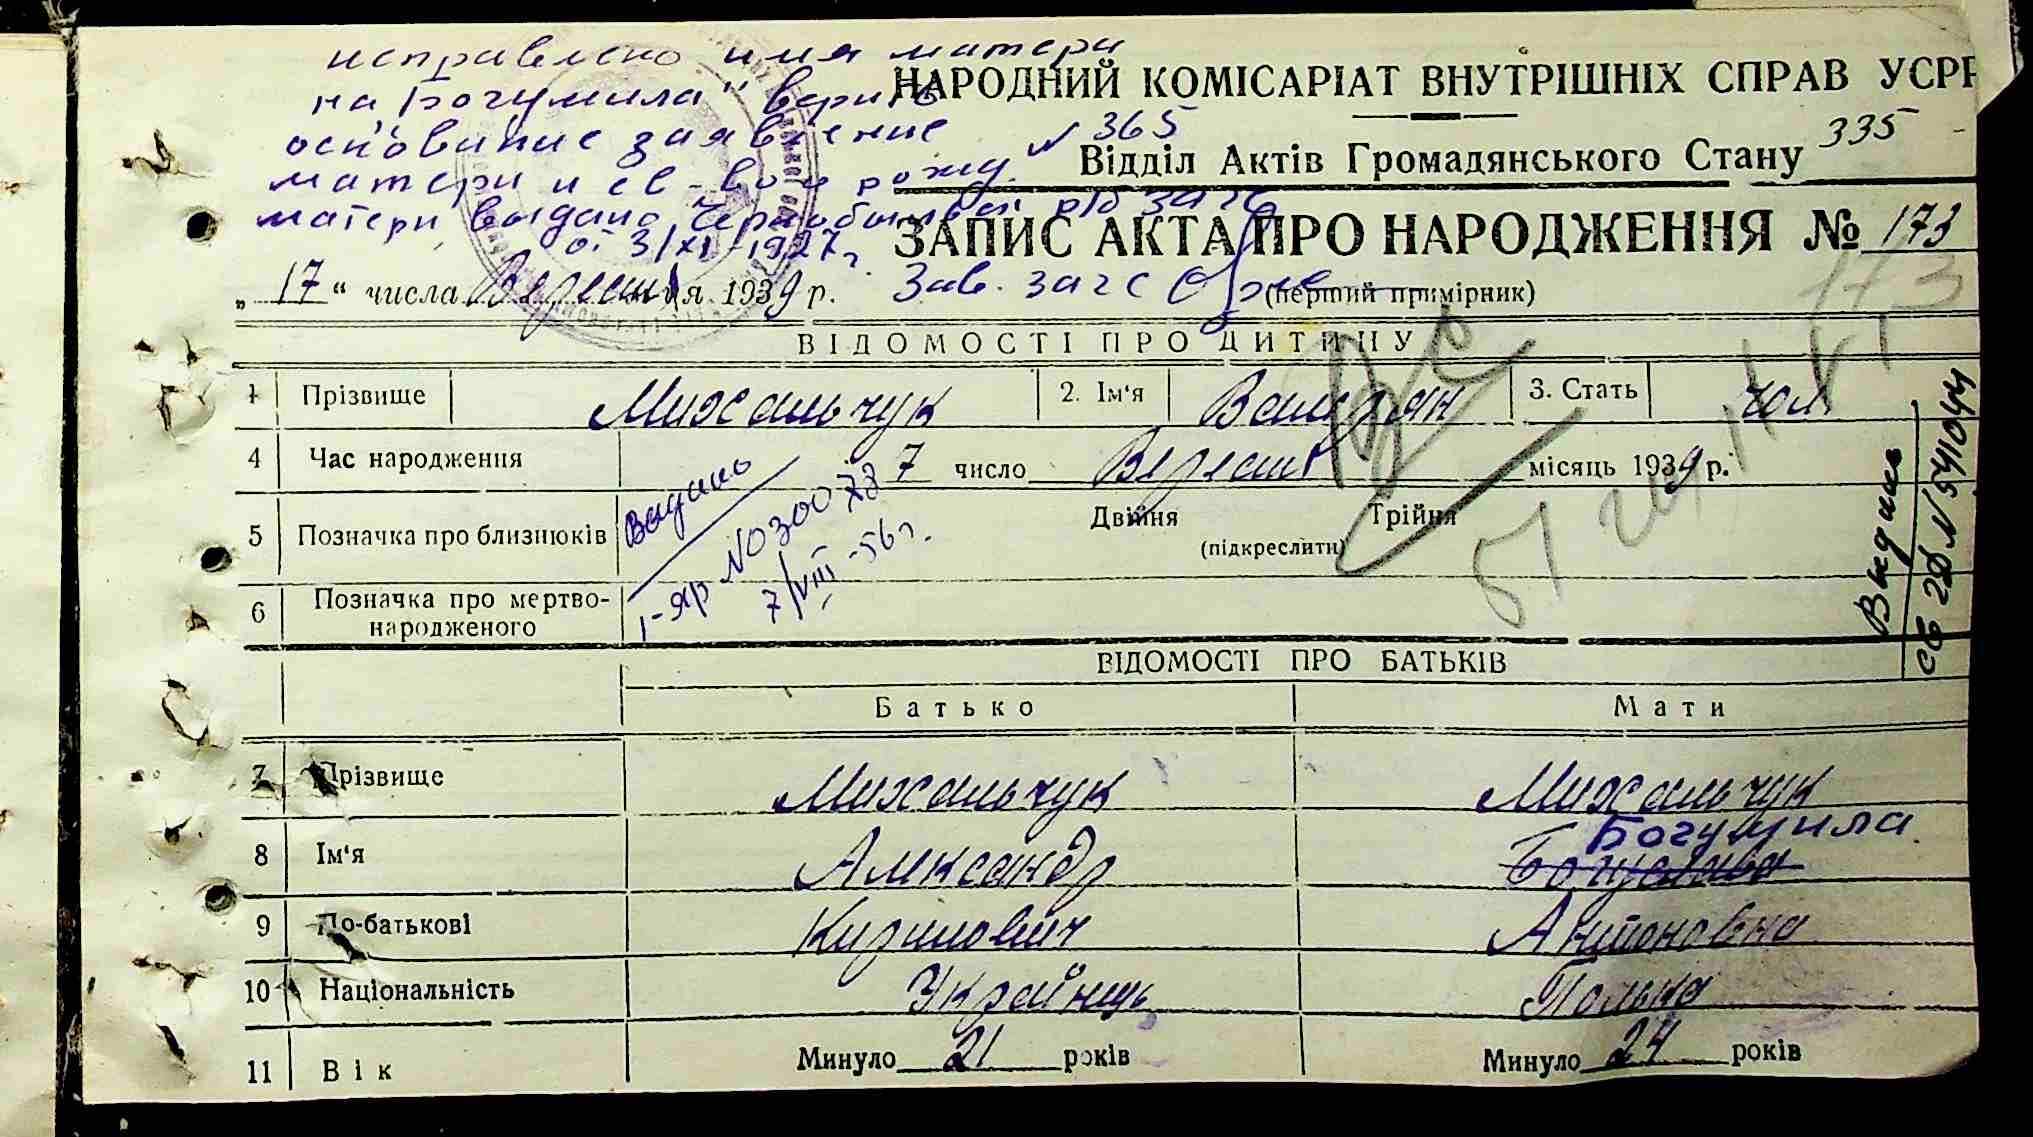 исправлено имя матери
на „Богумила" верить
НАРОДНИЙ КОМІСАРІАТ ВНУТРІШНІХ СПРАВ УСРР
основание заявление
№ 365
335
Відділ Актів Громадянського Стану
матери и св-во о рожд.
матери выдано Чернобыльск р/б загс
от 3/XI-1927г.
ЗАПИС АКТА ПРО НАРОДЖЕННЯ № 173
173
„17" числа Вересня 1939 р.
Зав. загс
(перший примірник)
ВІДОМОСТІ ПРО ДИТИНУ
1 Прізвище Михальчук 2. Ім'я 3. Стать чол
4 Час народження 7 число Вересня місяць 1939 р.
5 Позначка про близнюків Двійня Трійня
(підкреслити)
Выдано
I-яр №030078
7/VIII-56г.
6 Позначка про мертво-
народженого
Выдано
св 2б №
ВІДОМОСТІ ПРО БАТЬКІВ
Батько Мати
7 Прізвище Михальчук Михальчук
Богумила
8 Ім'я Александр
9 По-батькові Кирилович Антоновна
10 Національність Українець Полька
11 Вік Минуло 21 років Минуло 24 років